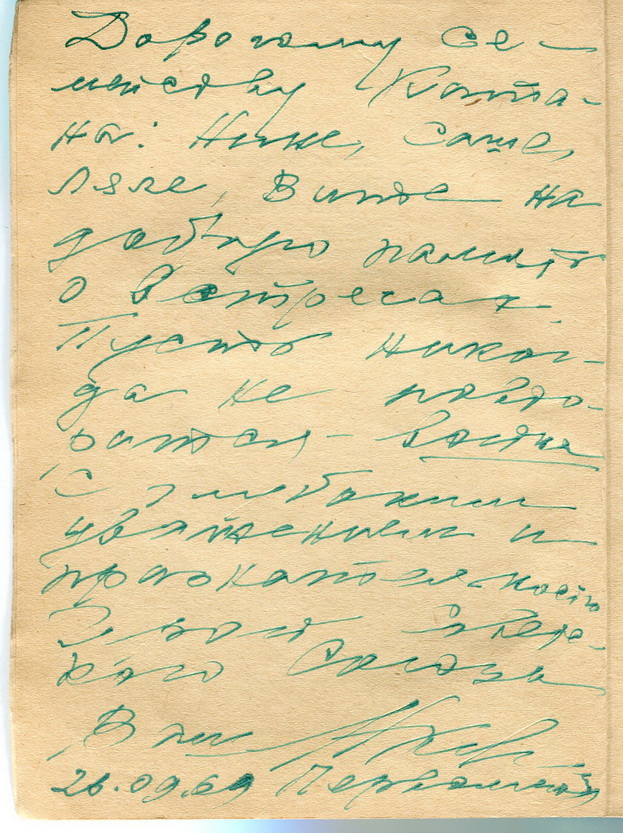 Дорогому се-
мейству
на: Нине, Саше,
Ляле, Вите на
добрую память
о встречах.
Пусть никог-
да не повто-
рится - война
С глубоким
уважением и
признательностью
Герой Совет-
кого Союза
Ваш
26.09.69 Первомайск